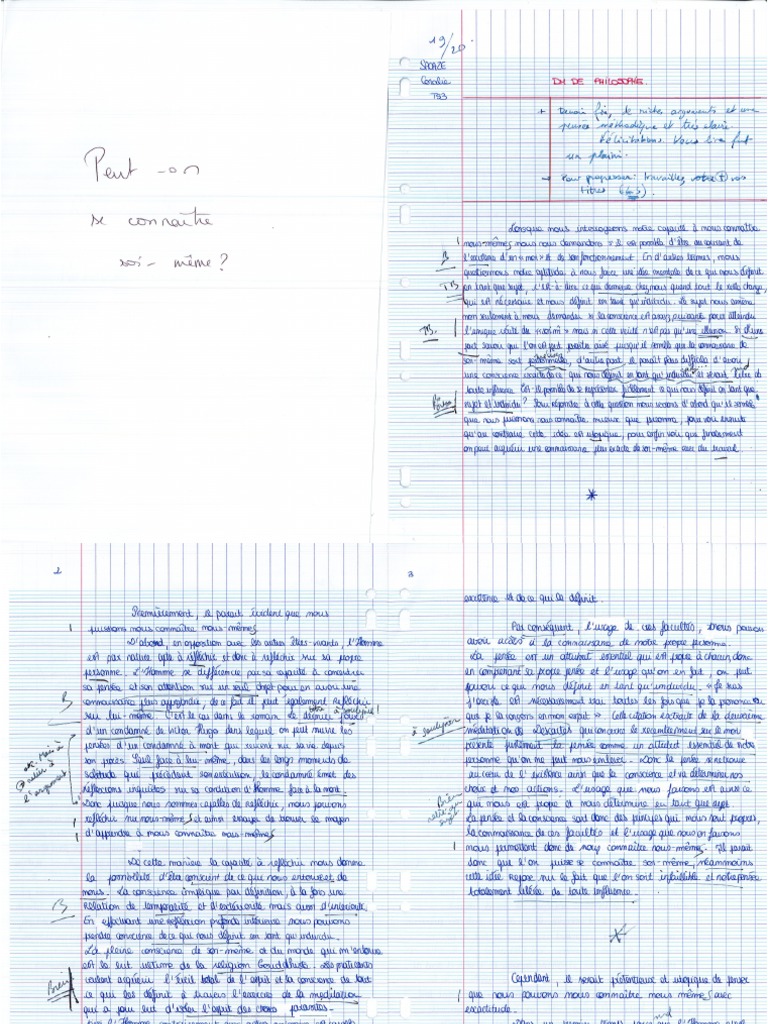 Peut-on
se connaître
soi-même?
19/20
Coralie
TS3
DM DE PHILOSOPHIE.
+ Devoir fin, de riches arguments et une
pensée méthodique et très claire.
Félicitations. Vous lire fut
un plaisir.
→ Pour progresser: travaillez vos
titres
Lorsque nous interrogeons notre capacité à nous connaître
nous-mêmes, nous nous demandons s'il est possible d'être au courant de
B l'existence d'un « moi » et de son fonctionnement. En d'autres termes, nous
questionnons notre aptitude à nous faire une idée mentale de ce qui nous définit
TB en tant que sujet, c'est-à-dire ce qui demeure chez nous quand tout le reste change,
qui est nécessaire et nous définit en tant qu'individu. Le sujet nous amène
non seulement à nous demander si la conscience est assez puissante pour atteindre
TB. l'unique vérité de « soi » mais si cette vérité n'est pas qu'une illusion. Si d'une
part savoir qui l'on est peut paraître aisé puisqu'il semble que la connaissance de
soi-même soit d'autre part, il paraît plus difficile d'avoir
une conscience exacte de ce qui nous définit en tant qu'individu et serait libre de
toute influence. Est-il possible de se représenter fidèlement ce qui nous définit en tant que
sujet et individu? Pour répondre à cette question nous verrons d'abord qu'il semble
que nous puissions nous connaître mieux que personne, pour voir ensuite
qu'au contraire cette idée est utopique, pour enfin voir que finalement
on peut acquérir une connaissance plus exacte de soi-même avec du travail.
*
2
Premièrement, il paraît évident que nous
puissions nous connaître nous-mêmes.
D'abord, en opposition avec les autres êtres-vivants, l'Homme
est par nature apte à réfléchir et donc à réfléchir sur sa propre
personne. L'Homme se différencie par sa capacité à concentrer
sa pensée et son attention sur un seul objet pour en avoir une
B connaissance plus approfondie, de ce fait il peut également réfléchir
sur lui-même. C'est le cas dans le roman Le dernier jour
d'un condamné de Victor Hugo dans lequel on peut suivre les
pensées d'un condamné à mort qui revient sur sa vie depuis
son procès. Seul face à lui-même, dans les longs moments de
solitude qui précèdent son exécution, le condamné émet des
réflexions inquiètes sur sa condition d'Homme face à la mort.
Donc puisque nous sommes capables de réfléchir, nous pouvons
réfléchir sur nous-mêmes et ainsi essayer de trouver le moyen
d'apprendre à nous connaître nous-mêmes.
De cette manière la capacité à réfléchir nous donne
la possibilité d'être conscient de ce qui nous entoure et de
nous. La conscience implique par définition, à la fois une
B relation de temporalité et d'extériorité mais aussi d'intériorité.
En effectuant une réflexion profonde intérieure nous pouvons
prendre conscience de ce qui nous définit en tant qu'individu.
La pleine conscience de soi-même et du monde qui m'entoure
est le but ultime de la religion Bouddhiste. Les pratiquants
veulent acquérir l'éveil total de l'esprit et la conscience de tout
ce qui les définit à travers l'exercice de la méditation
qui a pour but de vider l'esprit des idées parasites.
3
existence et de ce qui le définit.
Par conséquent, l'usage de ces facultés, nous pouvons
avoir accès à la connaissance de notre propre personne.
La pensée est un attribut essentiel qui est propre à chacun donc
en comprenant sa propre pensée et l'usage qu'on en fait, on peut
savoir ce qui nous définit en tant qu'individu. « Je suis
j'existe est nécessairement vrai toutes les fois que je la prononce ou
à souligner que je la conçois en mon esprit ». Cette citation extraite de la deuxième
méditation de Descartes qui concerne le recentrement sur le moi
présente justement la pensée comme un attribut essentiel de notre
personne qu'on ne peut nous enlever. Donc la pensée se retrouve
au cœur de l'existence ainsi que la conscience et va déterminer nos
choix et nos actions. L'usage que nous faisons est ainsi ce
qui nous est propre et nous détermine en tant que sujet.
La pensée et la conscience sont donc des principes qui nous sont propres,
la connaissance de ces facultés et l'usage que nous en faisons
nous permettent donc de nous connaître nous-même. Il paraît
donc que l'on puisse se connaître soi-même, néanmoins
cette idée repose sur le fait que l'on soit infaillible et notre pensée
totalement libérée de toute influence.
*
Cependant, il serait prétentieux et utopique de penser
que nous pouvons nous connaître nous même avec
exactitude.